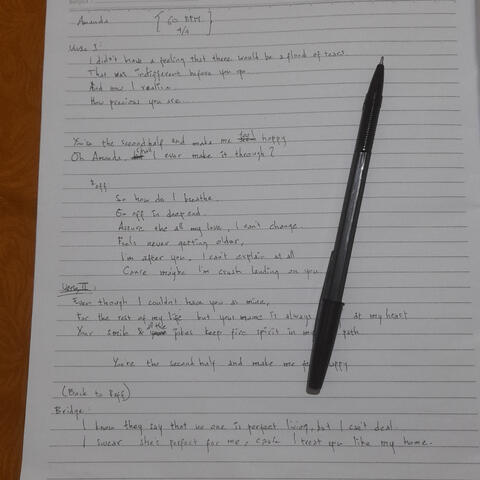 Amanda [60 BPM
4/4]
Verse I:
I didn't have a feeling that there would be a flood of tears
That was indifferent before you go
And now I realize
How precious you are
You're the second half and make me feel happy
Oh Amanda, shall I ever make it through?
Reff
So how do I breathe
Go off in deep end.
Assure the all my love, I can't change
Feels never getting older,
I'm after you, I can't explain at all
Cause maybe I'm crash landing on you
Verse II:
Even though I couldn't have you as mine,
For the rest of my life but your name is always at my heart
Your smile & the jokes keep fire spirit in my path
You're the second half and make me happy
(Back to Reff)
Bridge:
I know they say that no one is perfect living, but I can't deal
I swear she's perfect for me, could I treat you like my home.